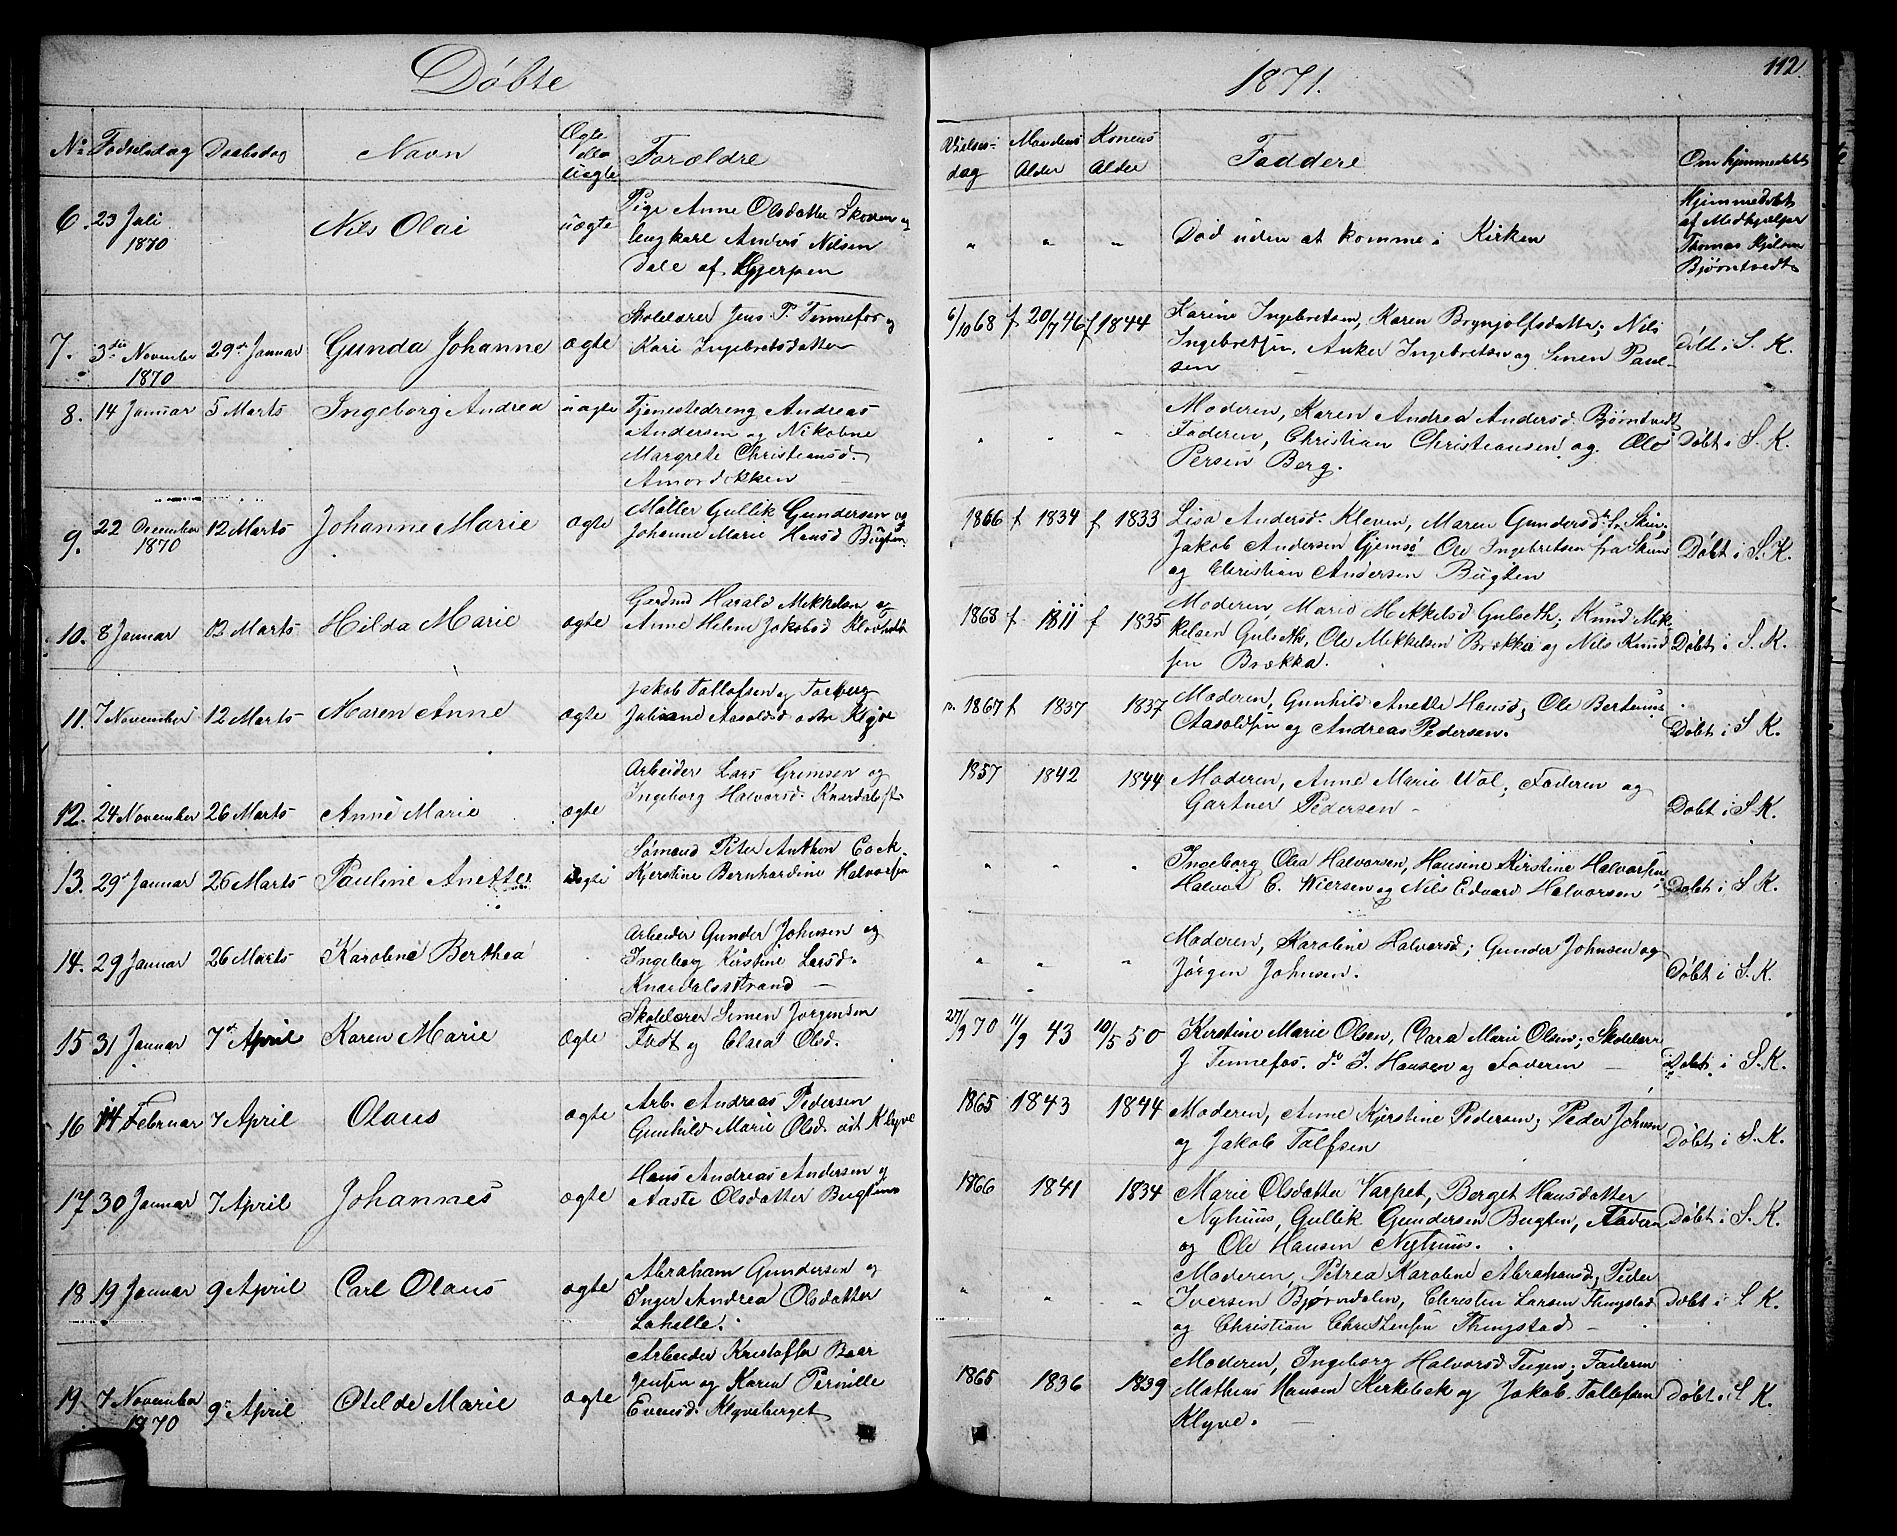 Döbte
1871.
112.
No Fødselsdag Daabsdag Navn Ægte eller Uægte Forældre Vielses-dag Mandens Alder Konens Alder Faddere Om hjemmedøbt
6. 23 Juli 1870 Nils Olai uægte
Pige Anne Olsdatter Skoven og
Ungkarl Anders Nilsen
Dale af Gjerpen
" " " Død uden at komme i Kirken
Hjemmedøbt
af Medhjælper
Thomas
Bjørntvedt
7. 3die November 1870 29de Januar Gunda Johanne ægte
Skolelærer Jens P. Tinnefos og
Kari Ingebretsdatter
6/10 68 f 20/7 46 f 1844
Karine Ingebretsen, Karen Brynjolfsdatter; Nils
Ingebretsen, Anker Ingebretsen og Simen Paul-
sen
døbt i S. K.
8. 14 Januar 5 Marts Ingeborg Andrea uægte
Tjenestedreng Andreas
Andersen og Nikoline
Margrete Christiansd.
" " "
Moderen, Karen Andrea Andersd. Bjørntvedt
Faderen, Christian Christiansen og Ole
Persen Berg.
Døbt i S. K.
9. 22 December 1870 12 Marts Johanne Marie ægte
Møller Gullik Gundersen og
Johanne Marie Hansd Bugten
1866 f 1834 f 1833
Lisa Andersd. Kleven, Maren Gundersd. fr. Skien,
Jakob Andersen Gjemsø Ole Ingebretsen fra Skien
og Christian Andersen Bugten
Døbt i S. K.
10. 8 Januar 12 Marts Hilda Marie ægte
Gaardmd Harald Mekkelsen og
Anne Helene Jakobsd Klovholt
1868 f 1811 f 1835
Moderen, Marie Mekkelsd Gulseth; Knud Mek-
kelsen Gulseth, Ole Mekkelsen Brække og Nils Knud
sen Brække.
Døbt i S. K.
11. 7 November 12 Marts Maren Anne ægte
Jakob Tollefsen og Torberg
Juliane Aasoldsd østre Klyve
1867 f 1837 1837
Moderen, Gunhild Anette Hansd; Ole Bertinius
Aasoldsen og Andreas Pedersen.
Døbt i S. K.
12. 24 November 26 Marts Anne Marie ægte
Arbeider Lars Grimsen og
Ingeborg Halvorsd. Knardalsst
1857 1842 1844
Moderen, Anne Marie Wol; Faderen og
Gartner Pedersen –
Døbt i S. K.
13. 29de Januar 26 Marts Pauline Anette uægte
Sømand Peter Anthon Cock.
Kjerstine Bernhardine Halvorsen
" " "
Ingeborg Olea Halvorsen, Hansine Kirstine Halvorsen
Halvor C. Wiersen og Nils Edvard Halvorsen –
Døbt i S. K.
14. 29 Januar 26 Marts Karoline Berthea
Arbeider Gunder Johnsen og
Ingeborg Kirstine Larsd.
Knardalsstrand –
" " "
Moderen, Karoline Halvorsd; Gunder Johnsen og
Jørgen Johnsen.
Døbt i S. K.
15 31 Januar 7de April Karen Marie Ægte
Skolelærer Simen Jørgensen
Født og Clara Olsd.
27/9 70 11/9 43 10/5 50
Kirstine Marie Olsen, Clara Marie Olsen; Skolelærer
J Tinnefos. do J. Hansen og Faderen –
Døbt i S. K.
16 14 Februar 7 April Olaus ægte
Arb. Andreas Pedersen
Gunhild Marie Olsd. øst Klyve
1865 1843 1844
Moderen, Anne Kjerstine Pedersen; Peder Johnsen
og Jakob Tolfsen
Døbt i S. K.
17 30 Januar 7 April Johannes ægte
Hans Andreas Andersen og
Aaste Olsdatter Bugten
1866 1841 1834
Marie Olsdatter Varpet, Berget Hansdatter
Nyhuus, Gullik Gundersen Bugten, Faderen
og Ole Hansen Nyhuus.
Døbt i S. K.
18 19 Januar 9 April Carl Olaus ægte
Abraham Gundersen og
Inger Andrea Olsdatter
Lahelle.
" " "
Moderen, Petrea Karoline Abrahamsd, Peder
Iversen Bjørndalen, Christen Larsen Thingstad
og Christian Christensen Thingstad –
Døbt i S. K.
19 7 November 1870 9de April Otilde Marie ægte
Arbeider Kristoffer Boar
Jensen og Karen Pernille
Evensd. Klyveberget
1865 1836 1839
Moderen, Ingeborg Halvorsd Tugen; Faderen
Mathias Hansen Kirkebek og Jakob Tollefsen
Klyve. –
Døbt i S. K.